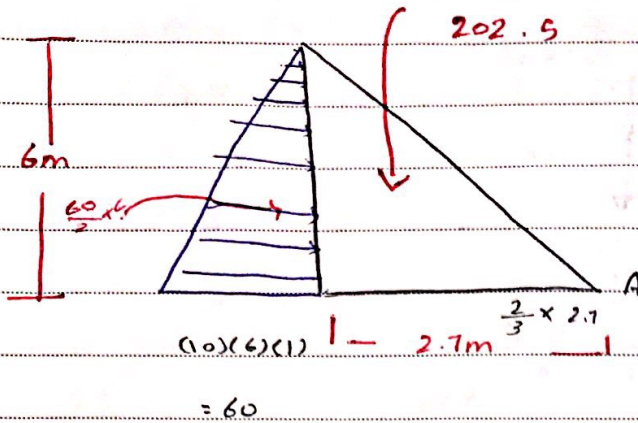 202.5
6m
60/2 × 6
A
2/3 × 2.7
(10)(6)(1)
2.7m
= 60